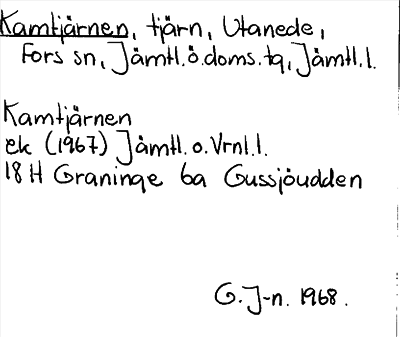 Kamtjärnen, tjärn, Utanede,
Fors sn, Jämtl.ö.doms.tg, Jämtl.l.
Kamtjärnen
ek (1967) Jämtl. o. Vrnl.l.
18 H Graninge 6a Gussjöudden
G. J-n. 1968.